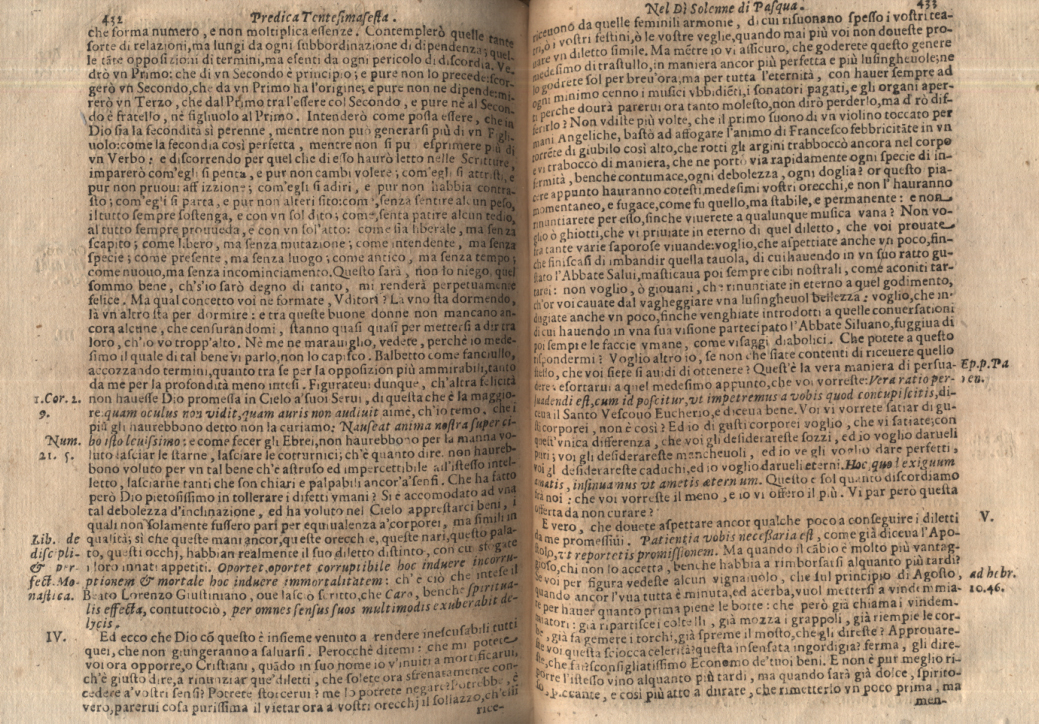 432 Predica Trentesimasesta.
che forma numero, e non moltiplica essenze. Contemplerò quelle tante
sorte di relazioni, ma lungi da ogni subbordinazione di dipendenza; quel-
le tãte opposizioni di termini, ma esenti da ogni pericolo di discordia. Ve-
drò vn Primo: che di vn Secondo è principio; e pure non lo precede: scor-
gerò vn Secondo, che da vn Primo ha l'origine; e pure non ne dipende: mi-
rerò vn Terzo, che dal Primo tra l'essere col Secondo, e pure nè al Secon-
do è fratello, nè figliuolo al Primo. Intenderò come possa essere, che in
Dio sia la fecondità sì perenne, mentre non può generarsi più di vn Figli-
uolo: come la fecondia così perfetta, mentre non si può esprimere più di
vn Verbo: e discorrendo per quel che di esso haurò letto nelle Scritture,
imparerò com'egli si penta, e pur non cambi volere; com'egli si attristi, e
pur non pruoui affizzione; com'egli si adiri, e pur non habbia contra-
sto; com'egli si parta, e pur non alteri sito: com', senza sentire alcun peso,
il tutto sempre sostenga, e con vn sol dito; come, senza patire alcun tedio,
al tutto sempre proueda, e con vn sol'atto: come sia liberale, ma senza
scapito; come libero, ma senza mutazione; come intendente, ma senza
specie; come presente, ma senza luogo; come antico, ma senza tempo;
come nuouo, ma senza incominciamento. Questo sarà, non lo niego, quel
sommo bene, ch's'io sarò degno di tanto, mi renderà perpetuamente
felice. Ma qual concetto voi ne formate, Vditori? Là vno sta dormendo,
là vn altro sta per dormire: e tra queste buone donne non mancano an-
cora alcune, che censurandomi, stanno quasi quasi per mettersi a dir tra
loro, ch'io vo tropp'alto. Nè me ne marauiglio, vedete, perchè io mede-
simo il quale di tal bene vi parlo, non lo capisco. Balbetto come fanciullo,
accozzando termini, quanto tra se per la opposizion più ammirabili, tanto
da me per la profondità meno intesi. Figurateui dunque, ch'altra felicità
1. Cor. 2. non hauesse Dio promessa in Cielo a'suoi Serui, di questa che è la maggio-
9. re. quam oculus non vidit, quam auris non audiuit aimè, ch'io temo, che i
più gli haurebbono detto non la curiamo: Nauseat anima nostra super ci-
Num. bo isto leuissimo: e come fecer gli Ebrei, non haurebbono per la manna vo-
21. 5. luto lasciar le starne, lasciare le coturnici; ch'è quanto dire. non haureb-
bono voluto per vn tal bene ch'è astruso ed impercettibile all'istesso intel-
letto, lasciarne tanti che son chiari e palpabili ancor'a'sensi. Che ha fatto
però Dio pietosissimo in tollerare i difetti vmani? Si è accomodato ad vna
tal debolezza d'inclinazione, ed ha voluto nel Cielo apprestarci beni, i
quali non solamente fussero pari per equiualenza a'corporei, ma simili in
Lib. de qualità; sì che queste mani ancor, queste orecchie, queste nari, questo pala-
discipli- to, questi occhj, habbian realmente il suo diletto distinto, con cui sfogare
& per i loro innati appetiti. Oportet, oportet corruptibile hoc induere incorru-
fect. Mo- ptionem & mortale hoc induere immortalitatem: ch'è ciò che intese il
nastica. Beato Lorenzo Giustiniano, oue lasciò scritto, che Caro, benchè spiritua-
lis effecta, contuttociò, per omnes sensus suos multimodis exuberabit de-
lycis.
IV. Ed ecco che Dio cõ questo è insieme venuto a rendere inescusabili tutti
quei, che non giungeranno a saluarsi. Perocchè ditemi: che mi potete
voi ora opporre, o Cristiani, quãdo in suo nome io v'inuiti a mortificarui,
ch'è giusto dire, a rinunziar que'diletti, che solete ora sfrenatamente con-
cedere a'vostri sensi? Potrete storcerui? me lo potrete negare? Potrebbe, è
vero, parerui cosa purissima il vietar ora a vostri orecchj il sollazzo, ch'essi
rice-
Nel Dì Solenne di Pasqua. 433
riceuono da quelle feminili armonie, di cui risuonano spesso i vostri tea-
tri, ò i vostri festini, ò le vostre veglie, quando mai più voi non doueste pro-
uare vn diletto simile. Ma mẽtre io vi assicuro, che goderete questo genere
medesimo di trastullo, in maniera ancor più perfetta e più lusingheuole; ne
lo godrete sol per breu'ora, ma per tutta l'eternità, con hauer sempre ad
ogni minimo cenno i musici vbbidiẽti, i sonatori pagati, e gli organi aper-
ti perche dourà parerui ora tanto molesto, non dirò perderlo, ma dirò dif-
ferirlo? Non vdiste più volte, che il primo suono di vn violino toccato per
mani Angeliche, bastò ad affogare l'animo di Francesco febbricitãte in vn
torrẽte di giubilo così alto, che rotti gli argini traboccò ancora nel corpo
e vi traboccò di maniera, che ne portò via rapidamente ogni specie di in-
fermità, benche contumace, ogni debolezza, ogni doglia? or questo pia-
cere appunto hauranno cotesti medesimi vostri orecchi, e non l'hauranno
momentaneo, e fugace, come fu quello, ma stabile, e permanente: e non
rinuntiarete per esso, finche viuerete a qualunque musica vana? Non vo-
glio ò ghiotti, che vi priuiate in eterno di quel diletto, che voi prouate
fra tante varie saporose viuande: voglio, che aspettiate anche vn poco, fin-
che finiscasi di imbandir quella tauola, di cui hauendo in vn suo ratto gu-
stato l'Abbate Salui, masticaua poi sempre cibi nostrali, come aconiti tar-
tarei: non voglio, ò giouani, che rinuntiate in eterno a quel godimento,
ch'or voi cauate dal vagheggiare vna lusingheuol bellezza: voglio, che in-
dugiate anche vn poco, finche venghiate introdotti a quelle conuersationi
di cui hauendo in vna sua visione partecipato l'Abbate Siluano, fuggiua di
poi sempre le faccie vmane, come visaggi diabolici. Che potete a questo
rispondermi? Voglio altro io, se non che siate contenti di riceuere quello
stesso, che voi siete sì audi di ottenere? Quest'è la vera maniera di persua-
Ep. p. Pa dere esortarui a quel medesimo appunto, che voi vorreste: Vera ratio per-
suadendi est, cum id poscitur, vt impetremus a vobis quod concupiscitis, di-
ceua il Santo Vescouo Eucherio, e diceua bene. Voi vi vorrete satiar di gu-
sti corporei, non è così? Ed io di gusti corporei voglio, che vi satiate; con
quest'vnica differenza, che voi gli desiderareste sozzi, ed io voglio darueli
puri; voi gli desiderareste mancheuoli, ed io ve gli voglio dare perfetti,
voi gl desiderareste caduchi, ed io voglio darueli eterni. Hoc, quod exiguum
amatis, insinuamus vt ametis æternum. Questo è sol quanto discordiamo
tra noi: che voi vorreste il meno, e io vi offero il più. Vi par però questa
offerta da non curare?
V. E vero, che douete aspettare ancor qualche poco a conseguire i diletti
da me promessiui. Patientia vobis necessaria est, come già diceua l'Apo-
stolo, vt reportetis promissionem. Ma quando il cãbio è molto più vantag-
gioso, chi non lo accetta, benche habbia a rimborsarsi alquanto più tardi?
ad hebr. Se voi per figura vedeste alcun vignaiuolo, che sul principio di Agosto,
10. 46. quando ancor l'vua tutta è minuta, ed acerba, vuol mettersi a vindemmia-
re per hauer quanto prima piene le botte: che però già chiama i vindem-
miatori: già ripartisce i coltelli, già mozza i grappoli, già riempie le cor-
be, già fa gemere i torchi, già spreme il mosto, che gli direste? Approuare-
ste voi questa sciocca celerità? questa insensata ingordigia? ferma, gli dire-
ste, che fai? sconsigliatissimo Economo de'tuoi beni. E non è pur meglio ri-
porre l'istesso vino alquanto più tardi, ma quando sarà già dolce, spirito-
so, piccante, e così più atto a durare, che rimetterlo vn poco prima, ma
men-